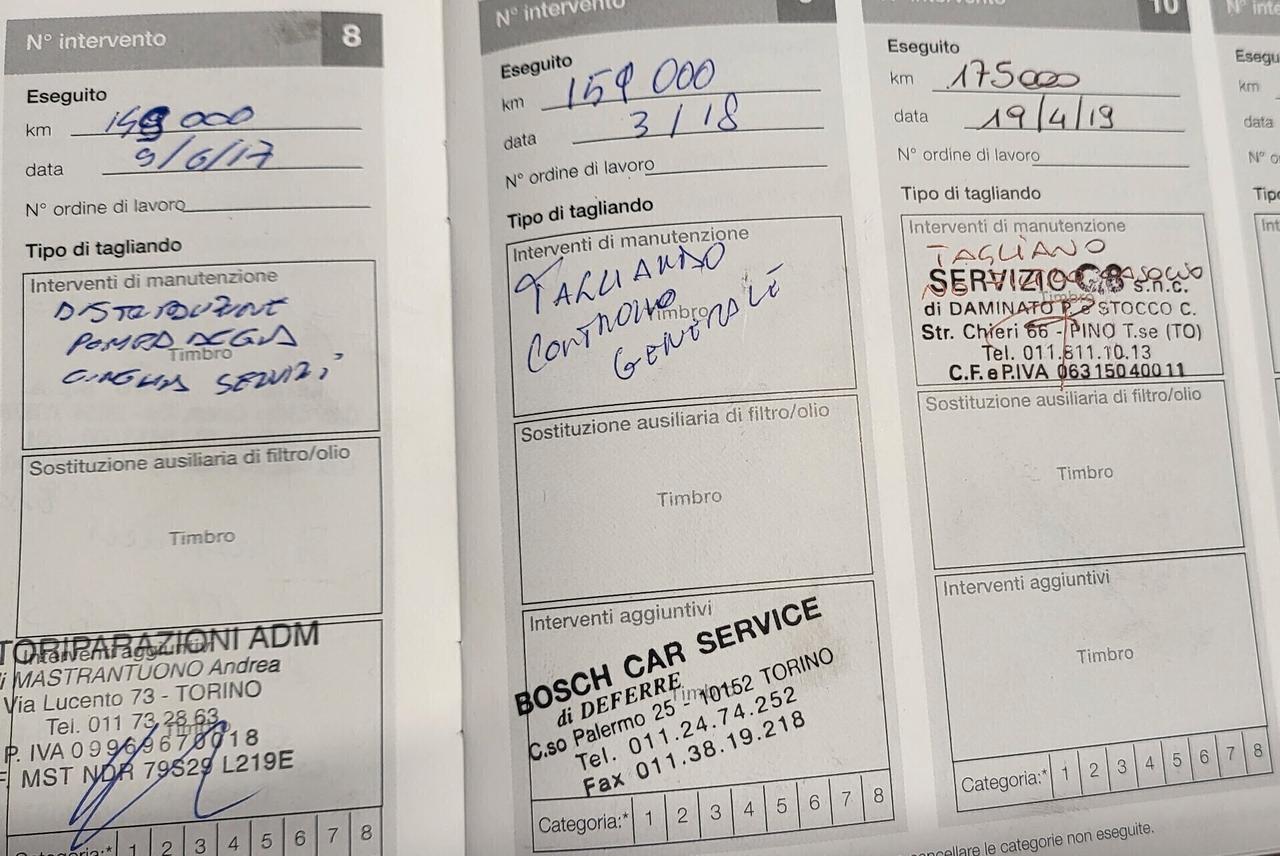 N° intervento 8
Eseguito
km 000
data 9/6/17
N° ordine di lavoro
Tipo di tagliando
Interventi di manutenzione
DISTRIBUZIONE
POMPA ACQUA
Timbro
CINGHIA SERVIZI
Sostituzione ausiliaria di filtro/olio
Timbro
TORIPARAZIONI ADM
Interventi aggiuntivi
di MASTRANTUONO Andrea
Via Lucento 73 - TORINO
Tel. 011 73.28.63
Timbro
P. IVA 09969670018
F. MST NDR 79S29 L219E
Categoria:* 1 2 3 4 5 6 7 8
N° intervento
Eseguito
km 159 000
data 3/18
N° ordine di lavoro
Tipo di tagliando
Interventi di manutenzione
TAGLIANDO
CONTROLLO
Timbro
GENERALE
Sostituzione ausiliaria di filtro/olio
Timbro
Interventi aggiuntivi
BOSCH CAR SERVICE
di DEFERRE
Timbro
C.so Palermo 25 - 10152 TORINO
Tel. 011.24.74.252
Fax 011.38.19.218
Categoria:* 1 2 3 4 5 6 7 8
10
Eseguito
km 175000
data 19/4/19
N° ordine di lavoro
Tipo di tagliando
Interventi di manutenzione
TAGLIANO
SERVIZIO s.n.c.
Timbro
di DAMINATO P. e STOCCO C.
Str. Chieri 66 - PINO T.se (TO)
Tel. 011.811.10.13
C.F. e P.IVA 06315040011
Sostituzione ausiliaria di filtro/olio
Timbro
Interventi aggiuntivi
Timbro
Categoria:* 1 2 3 4 5 6 7 8
cancellare le categorie non eseguite.
N° inte
Esegu
km
data
N° o
Tipo
Int